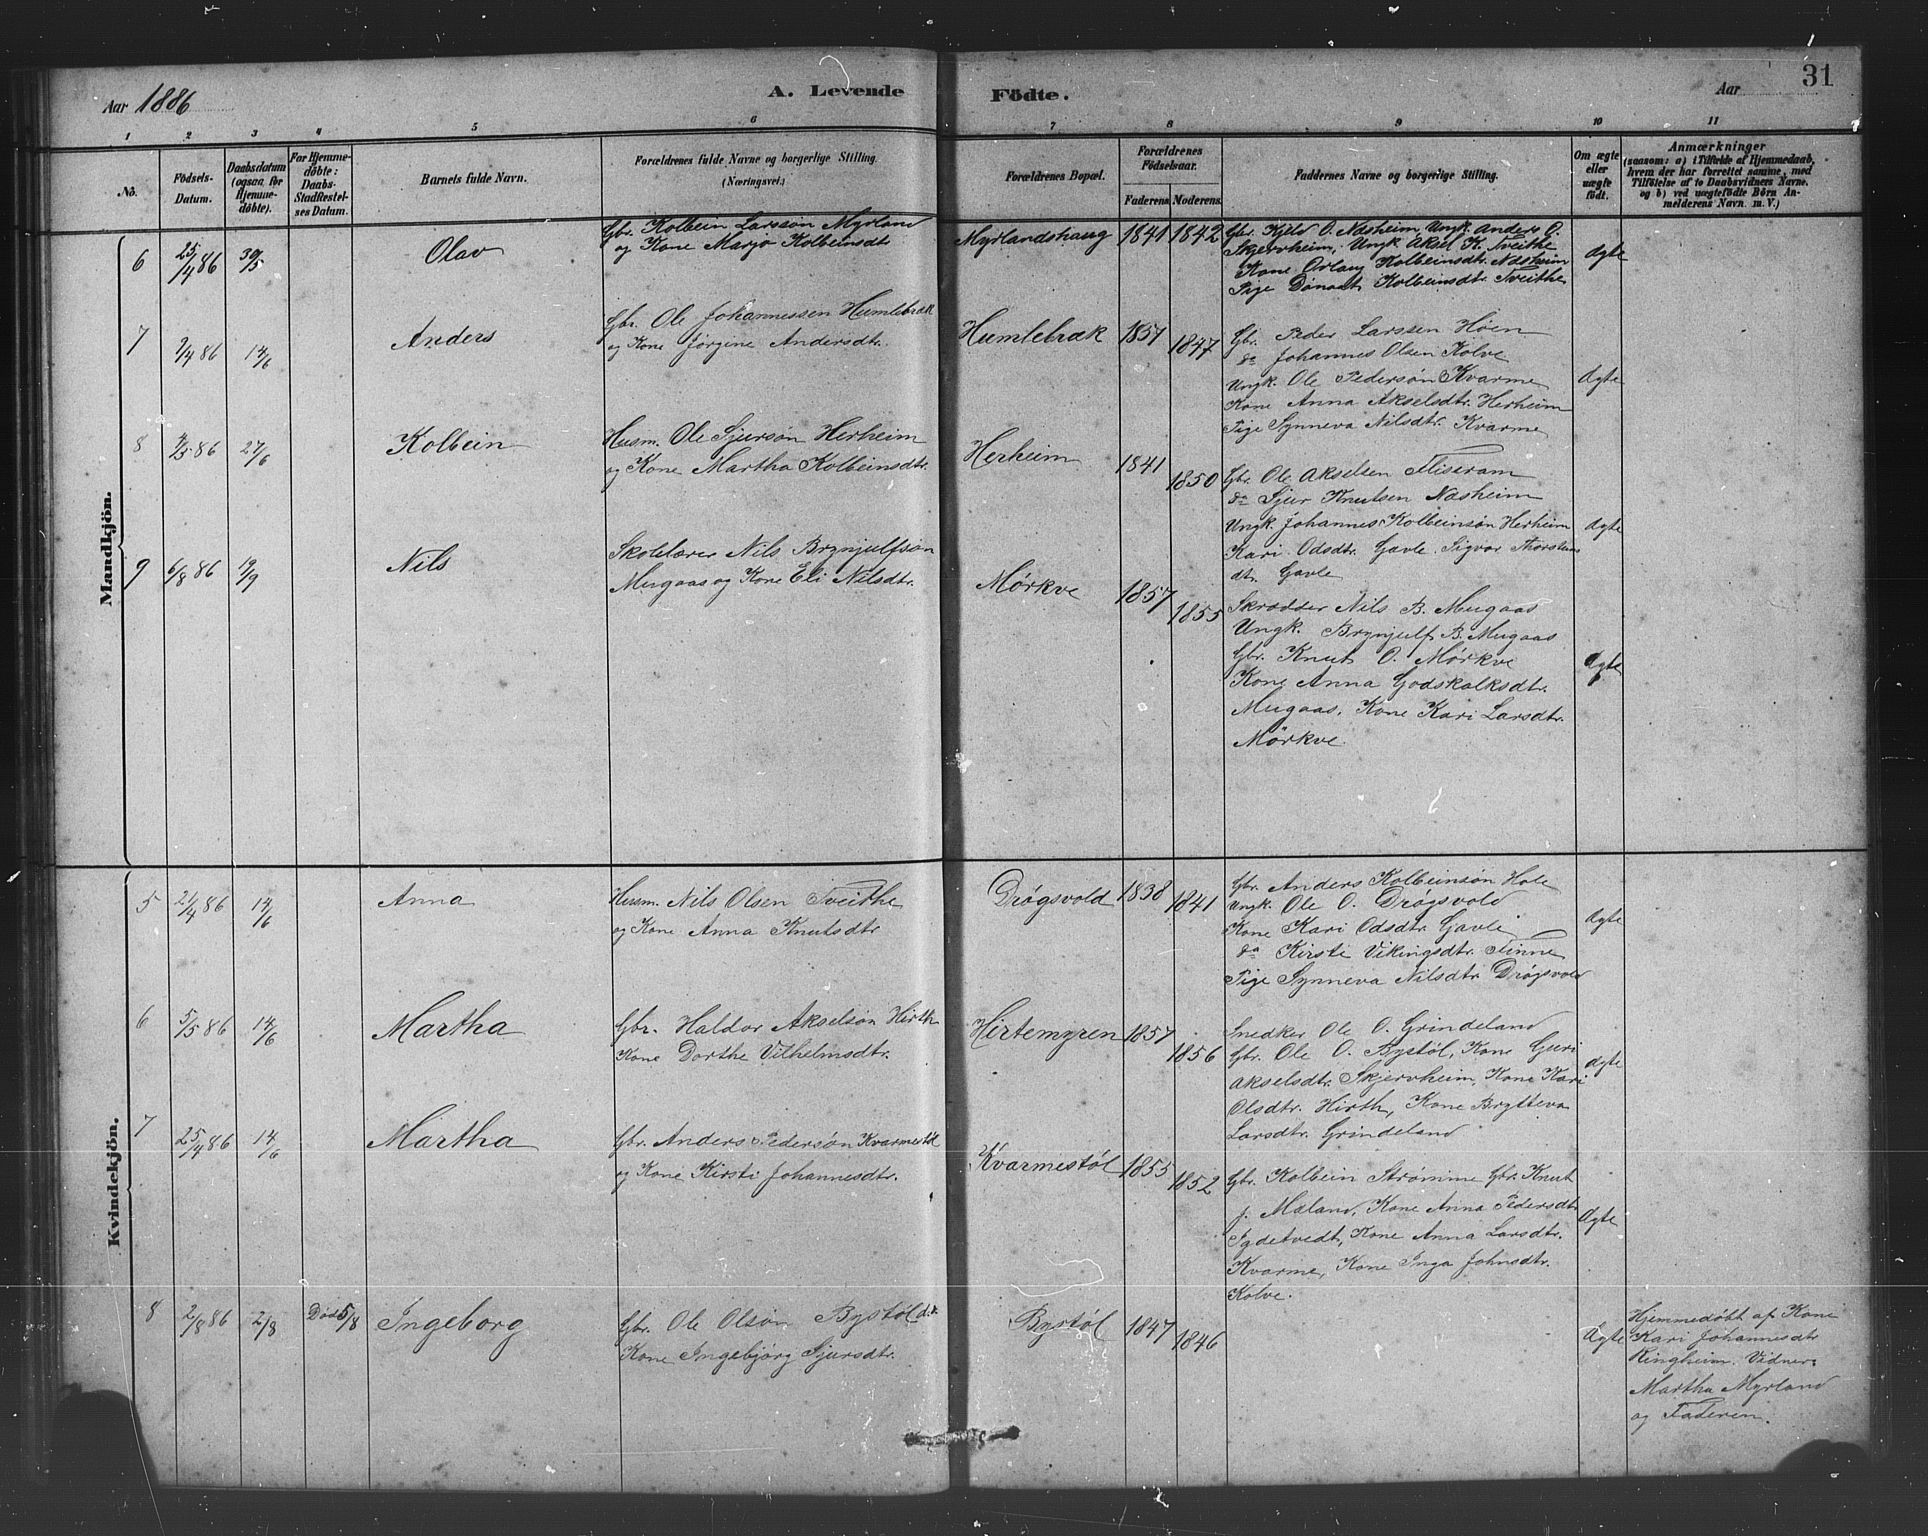 Aar 1886
A. Levende Födte.
Aar
31
1 2 3 4 5 6 7 8 9 10 11
No.
Födsels-Datum.
Daabsdatum (ogsaa for Hjemme-døbte).
For Hjemme-døbte: Daabs-Stadfæstel-ses Datum.
Barnets fulde Navn.
Forældrenes fulde Navne og borgerlige Stilling. (Næringsvei.)
Forældrenes Bopæl.
Forældrenes Födselsaar.
Faderens Moderens
Faddernes Navne og borgerlige Stilling.
Om ægte eller uægte födt.
Anmærkninger
(saasom: a) i Tilfælde af Hjemmedaab, hvem der har forrettet samme, med Tilföielse af to Daabsvidners Navne, og b) ved uægtefödte Börn An-melderens Navn m. V.)
Mandkjön.
6 25/4 86 30/5 Olav
Gbr. Kolbein Larssøn Myrland
og Kone Marjo Kolbeinsdt
Myrlandshaug 1841 1842
Gbr. Kjeld O. Næsheim, Ungk. Anders O.
Skjervheim, Ungk. Aksel K. Tveithe
Kone Orlaug Kolbeinsdtr. Næsheim
Pige Dønaat Kolbeinsdtr Tveithe
Ægte
7 7/4 86 14/6 Anders
Gbr. Ole Johannessen Humlebræk
og Kone Jørgine Andersdtr.
Humlebræk 1851 1847
Gbr. Peder Larssen Høen
do Johannes Olsen Kolve
Ungk. Ole Pedersøn Kvarme
Kone Anna Akselsdtr. Herheim
Pige Synneva Nilsdtr. Kvarme
Ægte
8 86 27/6 Kolbein
Husm. Ole Sjursøn Herheim
og Kone Martha Kolbeinsdtr.
Herheim 1841 1850
Gbr. Ole Akselsen Fliseram
do Sjur Knutsen Næsheim
Ungk. Johannes Kolbeinsøn Herheim
Kari Odsdtr. Gavle. Sigvor Thorsteins
dt. Gavle
Ægte
9 6/8 86 19/9 Nils
Skolelærer Nils Brynjulfsøn
Mugaas og Kone Eli Nilsdtr.
Mørkve 1857 1855
Skrædder Nils B. Mugaas
Ungk. Brynjulf B. Mugaas
Gbr. Knut O. Mørkve
Kone Anna Godskalksdtr.
Mugaas, Kone Kari Larsdtr.
Mørkve.
Ægte
Kvindekjön.
5 21/4 86 14/6 Anna
Husm. Nils Olsen Tveithe
og Kone Anna Knutsdtr
Drøgsvold 1838 1841
Gbr. Anders Kolbeinsøn Hole
Ungk. Ole O. Drøgsvold
Kone Kari Odsdtr. Gavle
do Kirsti Vikingsdtr. Finne
Pige Synneva Nilsdtr. Drøgsvold
Ægte
6 5/5 86 14/6 Martha
Gbr. Haldor Akselsøn Hirth
Kone Dorthe Vilhelmsdtr.
Hirtemyren 1857 1856
Snedker Ole O. Grindeland
Gbr. Ole O. Bystøl, Kone Guri
Akselsdtr. Skjervheim, Kone Kari
Olsdtr. Hirth, Kone Brytteva
Larsdtr. Grindeland
Ægte
7 25/4 86 14/6 Martha
Gbr. Anders Pedersøn Kvarmestøl
og Kone Kirsti Johannesdtr.
Kvarmestøl 1855 1852
Gbr. Kolbein Strømme Gbr. Knut
J. Mæland, Kone Anna Pedersdtr
Kone Anna Larsdtr.
Kvarme, Kone Inga Johnsdtr.
Kolve.
Ægte
8 2/8 86 2/8 Død 5/8 Ingeborg
Gbr. Ole Olsøn Bystøl
Kone Ingebjørg Sjursdtr.
Bystøl 1847 1846
Ægte
Hjemmedøbt af Kone
Kari Johannesdtr
Ringheim. Vidner:
Martha Myrland
og Faderen.